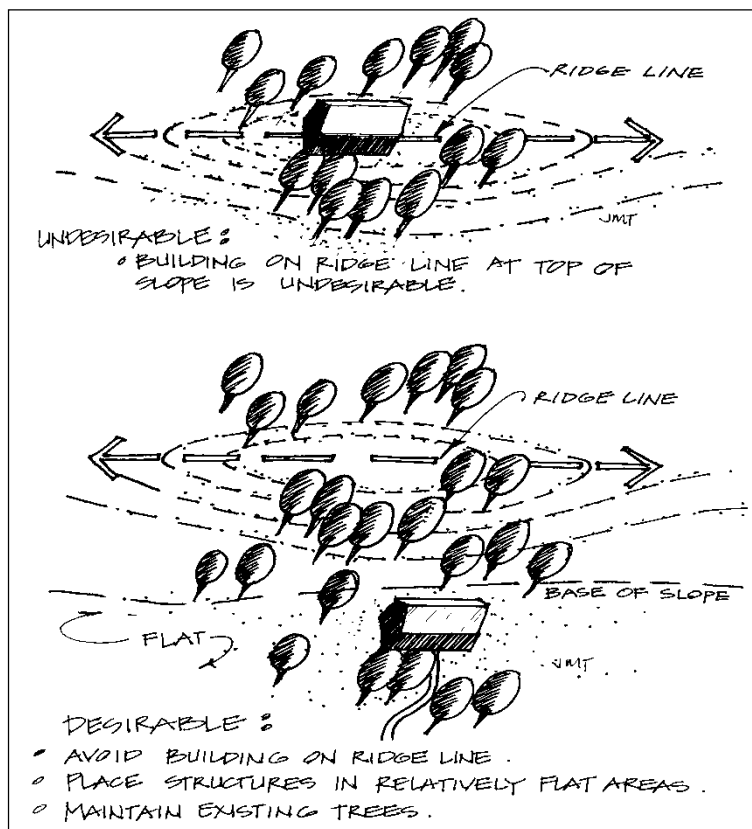 RIDGE LINE
JMT
UNDESIRABLE:
○ BUILDING ON RIDGE LINE AT TOP OF
SLOPE IS UNDESIRABLE.
RIDGE LINE
BASE OF SLOPE
FLAT
JMT
DESIRABLE:
● AVOID BUILDING ON RIDGE LINE.
○ PLACE STRUCTURES IN RELATIVELY FLAT AREAS.
○ MAINTAIN EXISTING TREES.